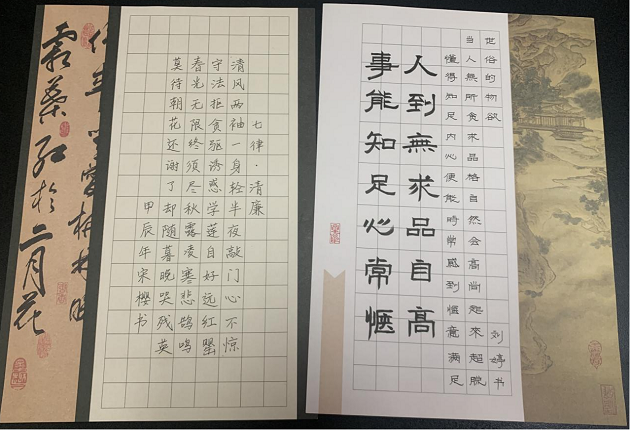 霜葉红於二月花
七律·清廉
清风两袖一身轻半夜敲门心不惊
守法拒贪驱诱惑学莲自好远红罂
春光无限终须尽秋露凌寒悲鹄鸣
莫待朝花还谢了却随暮晚哭残英
甲辰年宋樱书
人到無求品自高
事能知足心常惬
懂得知足内心便能時常感到惬意满足
当人無所贪求品格自然会高尚起來超脱
世俗的物欲
刘婷书